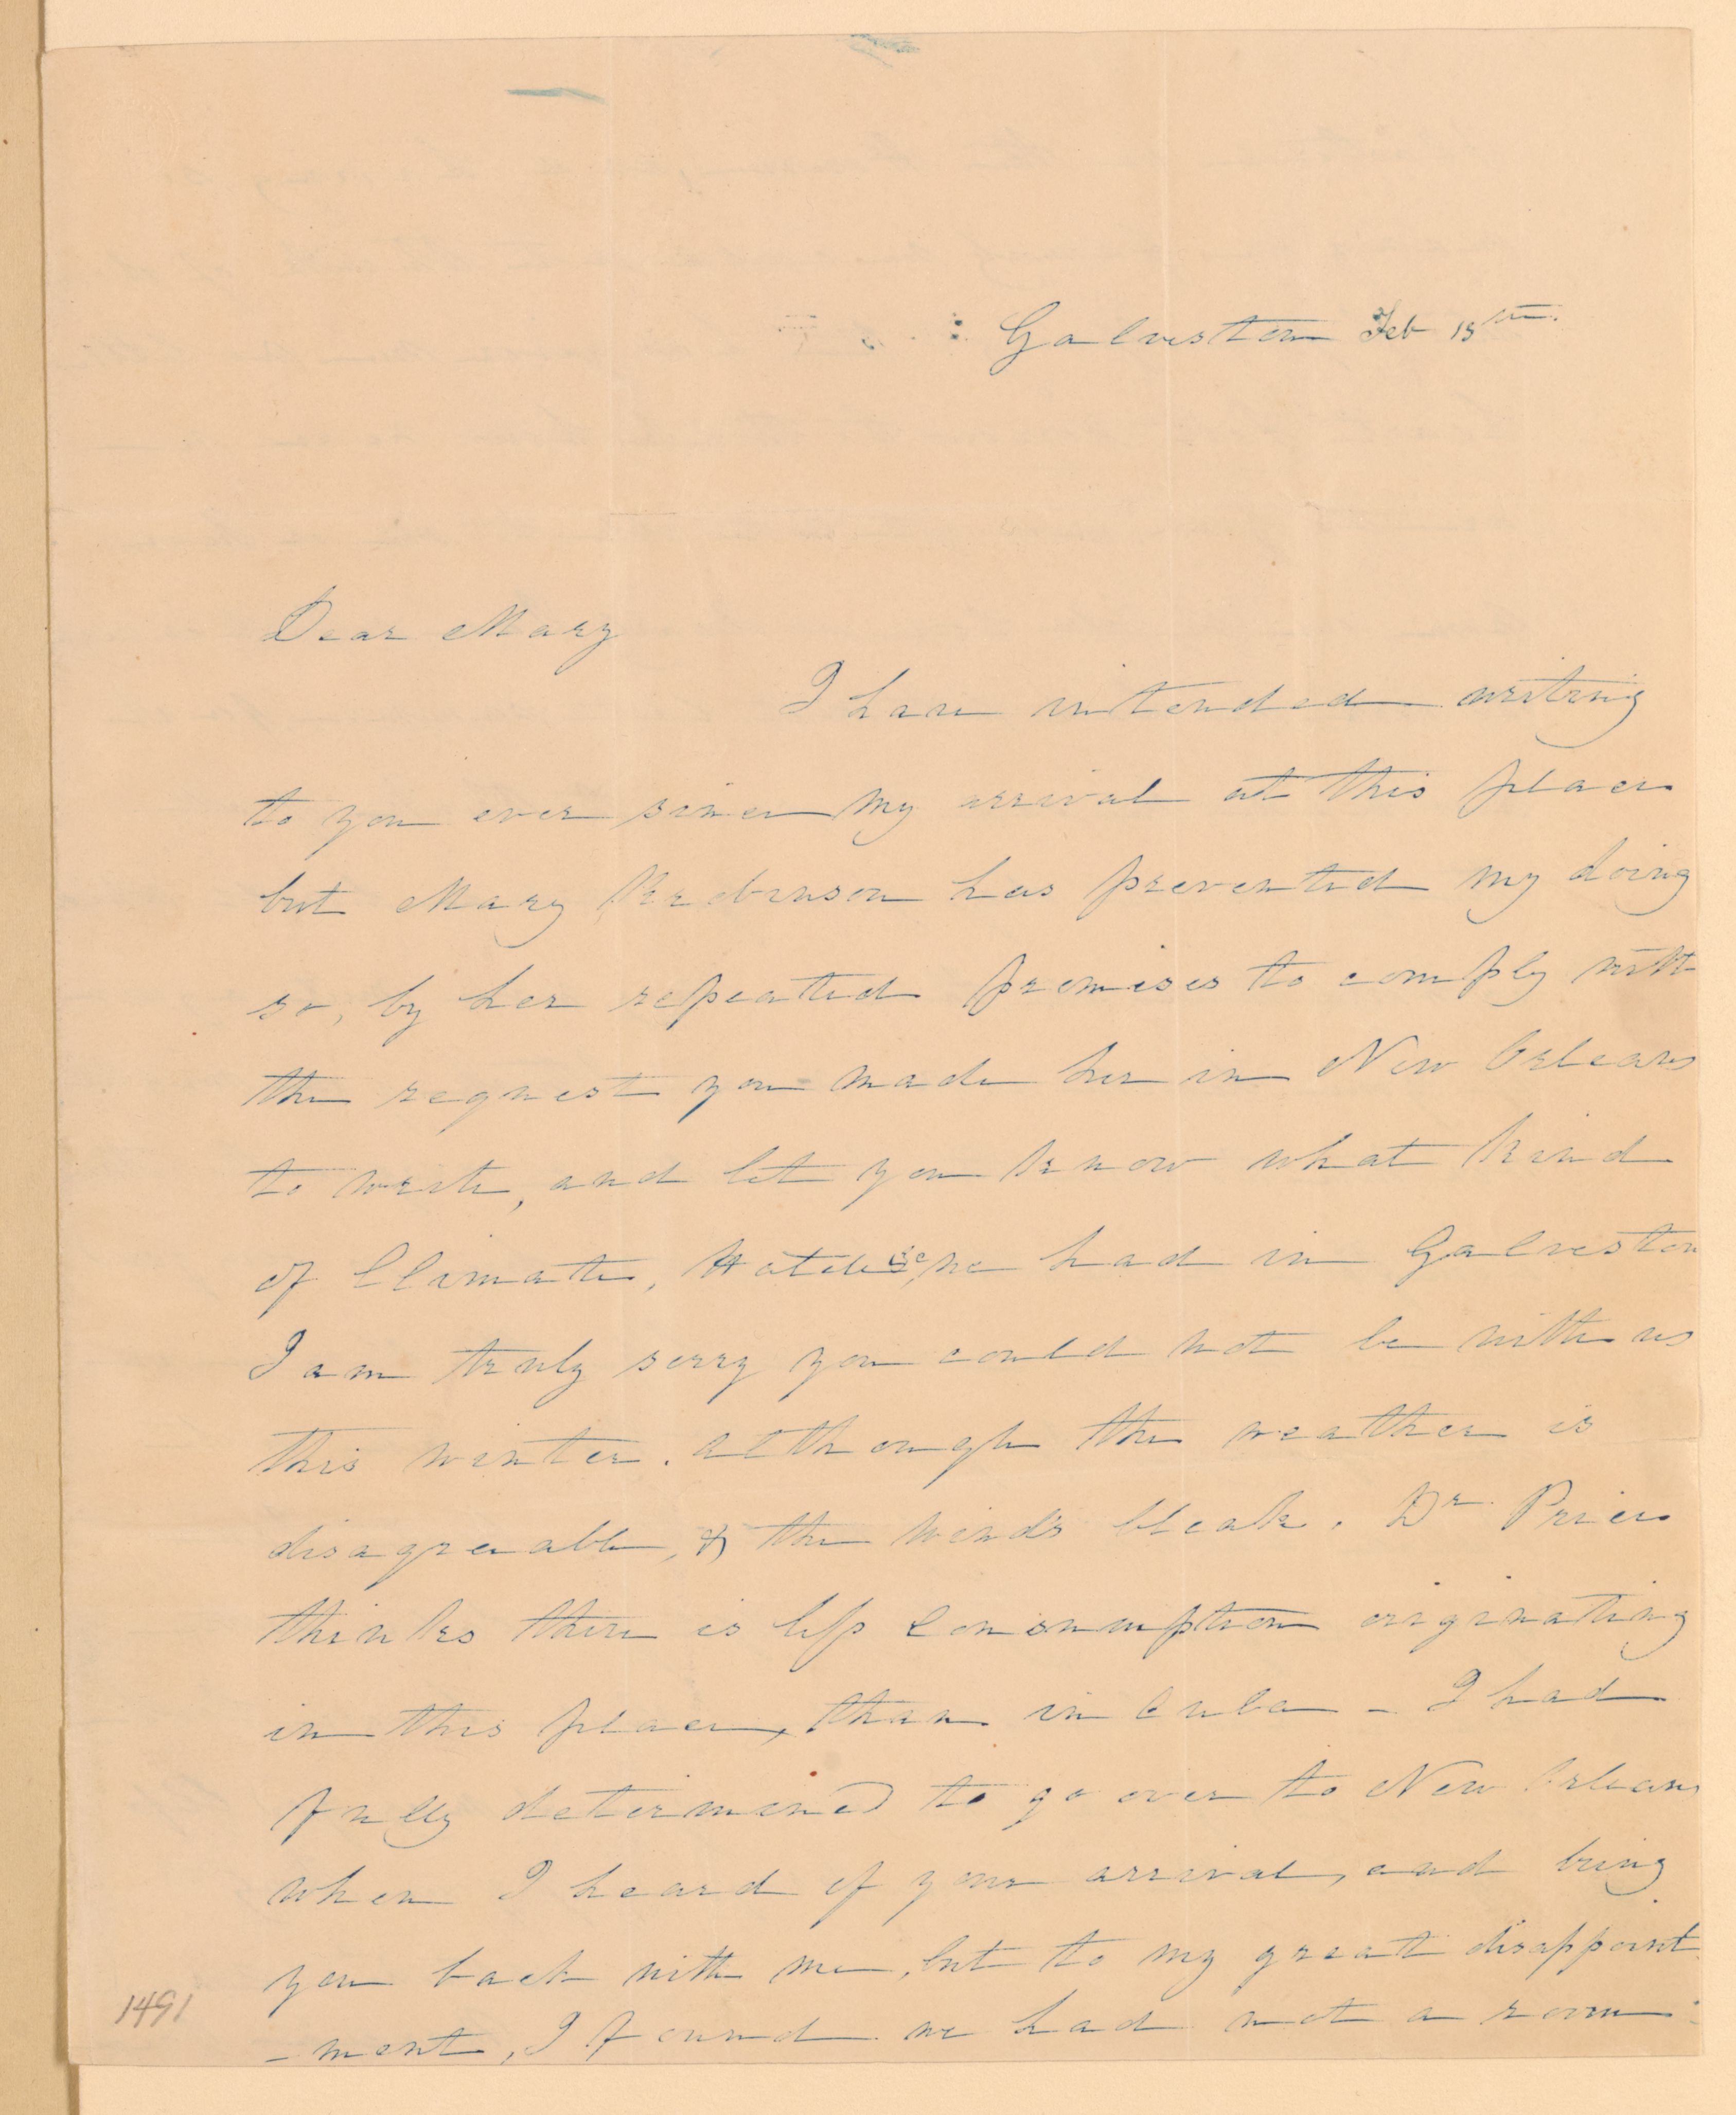 Galveston Feb 15th.
Dear Mary
I have intended writing
to you ever since my arrival at this place
but Mary Robinson has prevented my doing
so, by her repeated promises to comply with
the request you made her in New Orleans
to write, and let you know what kind
of Climate, Hotels &c, we had in Galveston
I am truly sorry you could not be with us
this winter. although the weather is
disagreeable, & the winds bleak. Dr. Price
thinks there is less consumption originating
in this place, than in Cuba - I had
fully determined to go over to New Orleans
when I heard of your arrival, and bring
you back with me, but to my great disappoint
-ment, I found we had not a room
1491